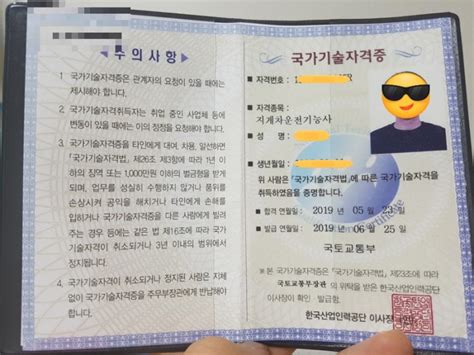 주 의 사 항
1. 국가기술자격증은 관계자의 요청이 있을 때에는
제시해야 합니다.
2. 국가기술자격취득자는 취업 중인 사업체 등에
변동이 있을 때에는 이의 정정을 요청해야 합니다.
3. 국가기술자격증을 타인에게 대여, 차용, 알선하면
「국가기술자격법」 제26조 제3항에 따라 1년 이
하의 징역 또는 1,000만원 이하의 벌금형을 받게
되며, 업무를 성실히 수행하지 않거나 품위를
손상시켜 공익을 해치거나 타인에게 손해를
입히거나 국가기술자격증을 다른 사람에게 빌려
주는 경우 등에는 같은 법 제16조에 따라 국가기
술자격이 취소되거나 3년 이내의 범위에서
정지됩니다.
4. 국가기술자격이 취소되거나 정지된 사람은 지체
없이 국가기술자격증을 주무부장관에게 반납해야
합니다.
국가기술자격증
■ 자격번호 :
■ 자격종목 :
지게차운전기능사
■ 성 명 :
■ 생년월일 :
위 사람은 「국가기술자격법」에 따른 국가기술자격을
취득하였음을 증명합니다.
■ 합격 연월일 : 2019 년 05 월 23 일
■ 발급 연월일 : 2019 년 06 월 25 일
국토교통부
* 본 국가기술자격증은 「국가기술자격법」 제23조에 따라
국토교통부장관의 위탁을 받은 한국산업인력공단
이사장이 확인 발급함.
한국산업인력공단 이사장